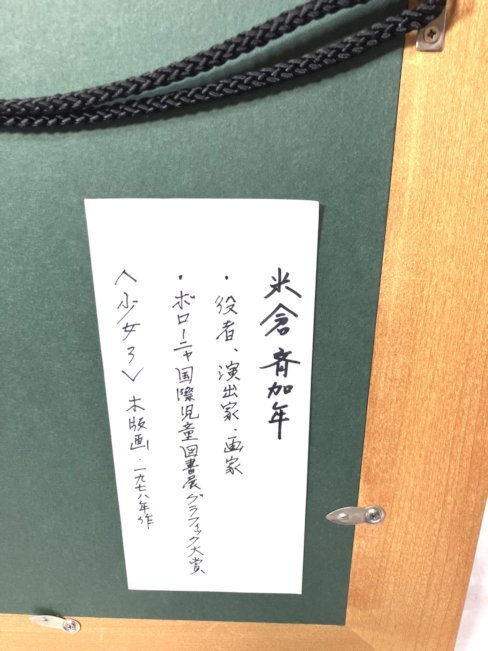 米倉斉加年
・役者、演出家、画家
・ボローニャ国際児童図書展グラフィック大賞
〈少女3〉木版画・一九七八年作